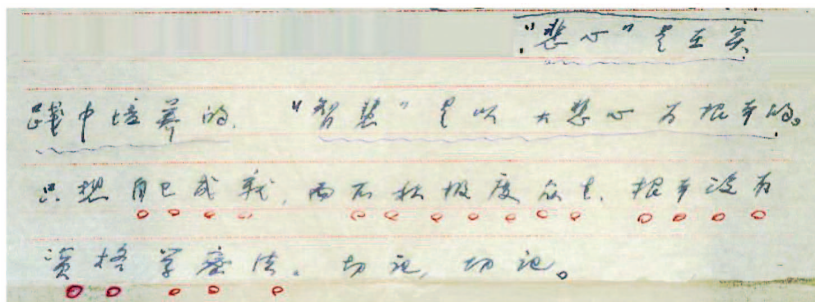 "悲心"是在实
践中培养的。"智慧"是以大悲心为根本的。
只想自己成就,而不积极度众生,根本没有
资格学密法。切记,切记。